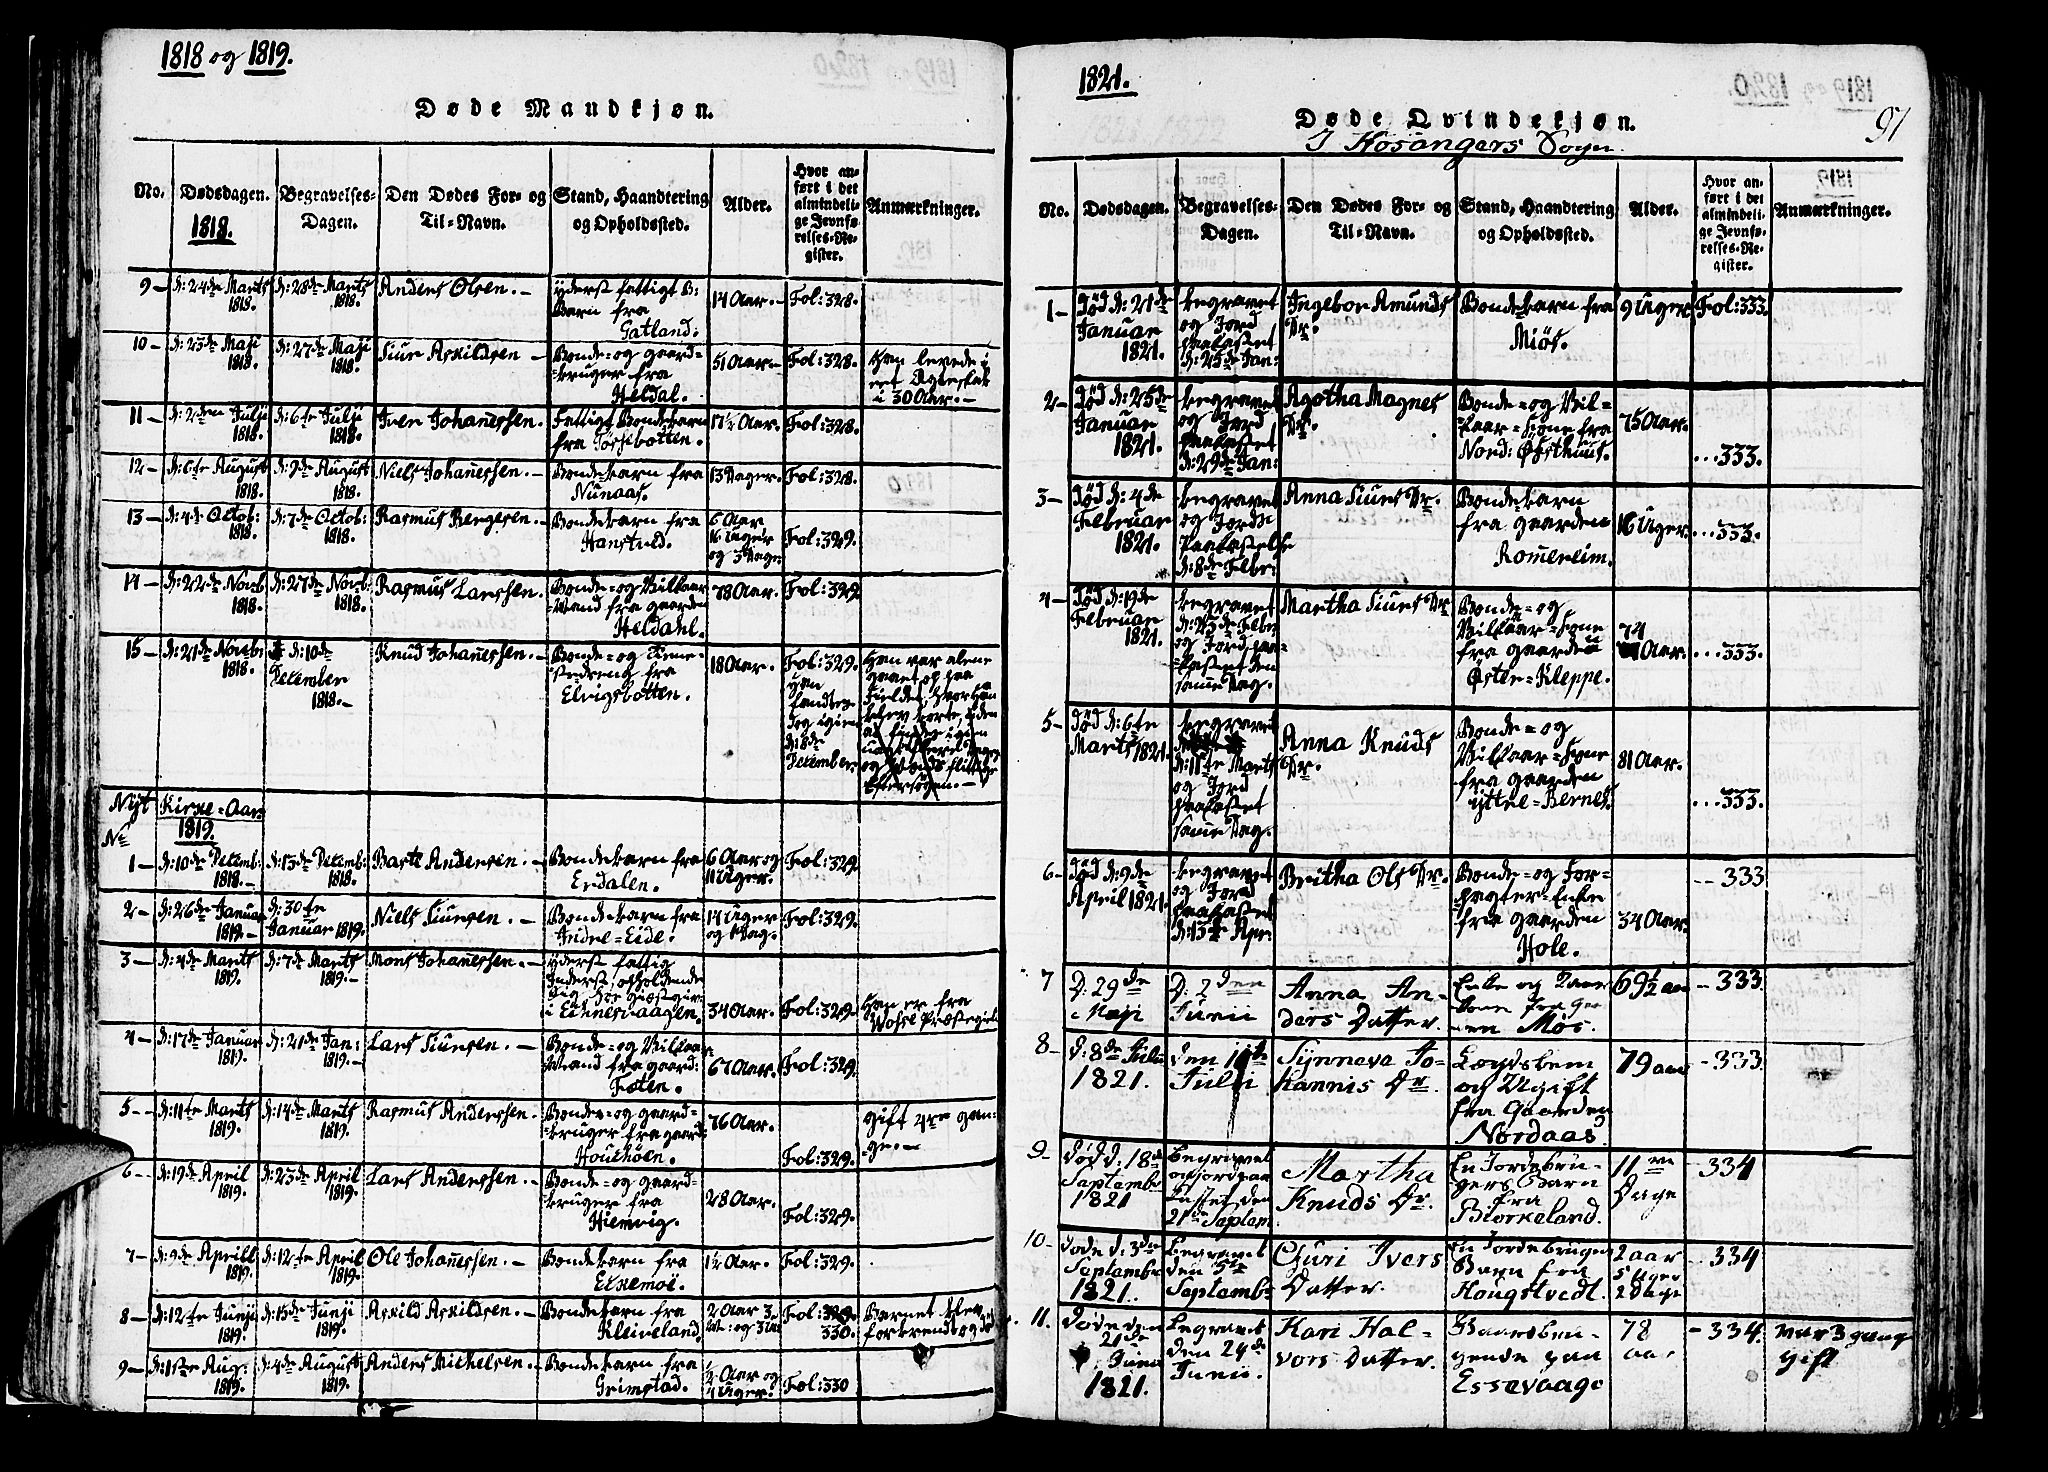 1818 og 1819.
Døde Mandkjøn.
No.
Dødsdagen.
1818.
Begravelses-
Dagen.
Den Dødes For- og
Til-Navn.
Stand, Haandtering
og Opholdssted.
Alder.
Hvor an-
ført i det
almindeli-
ge Jevnfø-
relses-Re-
gister.
Anmærkninger.
9 - d: 24de Marts 1818. d: 28de Marts 1818. Anders Olsen. - yderst fattigt B: Barn fra Gatland: 14 Aar. - Fol: 328.
10 - d: 23de Maji 1818. d: 27de Maji 1818. Siur Askildsen - Bonde- og gaard-bruger fra Heldal. 51 Aar - Fol: 328. Han levede i eet Ægteskab i 30 Aar. -
11 - d: 2den Julji 1818. d: 6te Julji 1818. Iver Johannessen. Fattigt Bondebarn fra Tossebotten. Aar. Fol: 328.
12 - d: 6te August 1818. d: 9de August 1818. Niels Johannessen. - Bondebarn fra Nunaas. 13 Dager. Fol: 328.
13 - d: 4de Octob: 1818. d: 7de Octob: 1818. Rasmus Bergesen. - Bondebarn fra Hanstved. 6 Aar 16 Uger og 3 Dage. Fol: 329.
14 - d: 22de Novb. 1818. d: 27de Novb. 1818. Rasmus Larssen. Bonde- og Villaar-Mand fra gaarden Heldahl. 78 Aar. Fol: 329
15 - d: 21de Novbr. 1818. d: 10de December 1818. - Knud Johannessen. - Bonde- og Tienestedreng fra Elvigsbotten. 18 Aar. Fol: 329. Han fandtes dog igien d: 8de December. Han var alene gaaet op paa Fieldet, hvor han blev borte, uden at findes igien og Mands flittige Eftersøgen. -
Nyt Kirke-Aar
1819.
No
1 - d: 10de Decemb: 1818. - d: 13de Decemb: 1818. Baste Andersen. - Bondebarn fra Erdalen. 6 Aar og 11 Uger. Fol: 329.
2 - d: 26de Januar 1819. - d: 30te Januar 1819. Niels Siursen. - Bondebarn fra Indre-Eide. 14 Uger og 1 Dag. Fol: 329.
3 - d: 4de Marts 1819. d: 7de Marts 1819. - Mons Johannessen. - yderst fattig Inderst, opholdende sig hos i Eknesvaagen. 34 Aar. Fol: 329. Han er fra Præstegield
4 - d: 17de Januar 1819. d: 21de Jan: 1819. - Lars Siursen. - Bonde- og Villaar-Mand fra gaard: Foten. 67 Aar. Fol: 329.
5 - d: 11te Marts 1819. d: 14de Marts 1819. Rasmus Anderssen. Bonde- og gaard-bruger fra gaard: 76 Aar. Fol: 329. gift 4re gan-ge. -
6 - d: 19de April 1819. d: 23de April 1819. Lars Anderssen. - Bonde- og gaard-bruger fra Hiemvig. 28 Aar. Fol: 329.
7 - d: 9de Aprill 1819. d: 12te April 1819. Ole Johannessen. - Bondebarn fra Eknemoi. 1½ Aar. Fol: 329.
8 - d: 12te Junji 1819. d: 15de Junji 1819. Askild Askildsen. - Bondebarn fra Kleiveland. 2 Aar Fol: 330. Barnet blev forbrendt og
9 - d: 1ste Aug: 1819. d: 4de August 1819. Anders Michelsen. - Bondebarn fra Grimstad. ½ Aar og 4 Uger. Fol: 330
1821.
97
Døde Qvindekjøn.
I Hosangers Sogn.
No.
Dødsdagen.
Begravelses-
Dagen.
Den Dødes For- og
Til-Navn.
Stand, Haandtering
og Opholdssted.
Alder.
Hvor an-
ført i det
almindeli-
ge Jevnfø-
relses-Re-
gister.
Anmærkninger.
1 - død d: 21de Januar 1821. begravet og Jord paakastet d: 25de Jan: Ingebor Amunds Dr. Bondebarn fra Miøs. 9 Uger Fol: 333.
2 - død d: 25de Januar 1821. begravet og Jord paakastet d: 29de Jan: Agotha Magnes Dr. Bonde- og Vil-laar-Kone fra Nord: Østhuus. 75 Aar. ... 333.
3 - død d: 4de Februar 1821. begravet og Jords Paakastelse d: 8de Febr: Anna Siurs Dr. Bondebarn fra gaarden Romereim. 16 Uger. ... 333.
4 - død d: 19de Februar 1821. begravet d: 25de Febr: og Jord paa-kastet den samme Dag. Martha Siurs Dr Bonde- og Villaar-Kone fra gaarden Øster-Kleppe. 74 Aar. ... 333.
5 - død d: 6te Marts 1821. begravet d: 11te Marts og Jord paakastet samme Dag. Anna Knuds Dr. Bonde- og Villaar-Kone fra gaarden yttre-Bernes. 81 Aar. ... 333.
6 - død d: 9de April 1821. begravet og Jord paakastet d: 13de Apr: Britha Ols Dr. Bonde- og For-pagter-Enke fra gaarden Hole. 34 Aar. - - 333
7 D: 29de Maji D: 2den Junii Anna An-ders Datter. Enke og fra Møs. 69½ aar - 333.
8 - d: 8de Julii 1821. den 11te Julii Synneva Jo-hannis Dr. Lægdslem og Ugift fra Gaarden Nordaas 79 aar - 333.
9 - død d: 18de Septembr 1821 Begravet og Jord paa kastet den 21de Septem. Martha Knuds Dr. En Jordebru-gers Barn fra Biørkeland. 11ve Dage - 334
10 - døde d: 3de Septembr 1821. begravet den 5te Septembr Guri Ivers Datter. En Jordebruger Barn fra Hougstvedt. 2 aar 5 Uger 2 Dage - 334
11. døde den 21de Junii 1821. begravet den 24de Junii. Kari Hal-vors Datter. paa Essevaage 78 aar - 334. var 3 gang gift